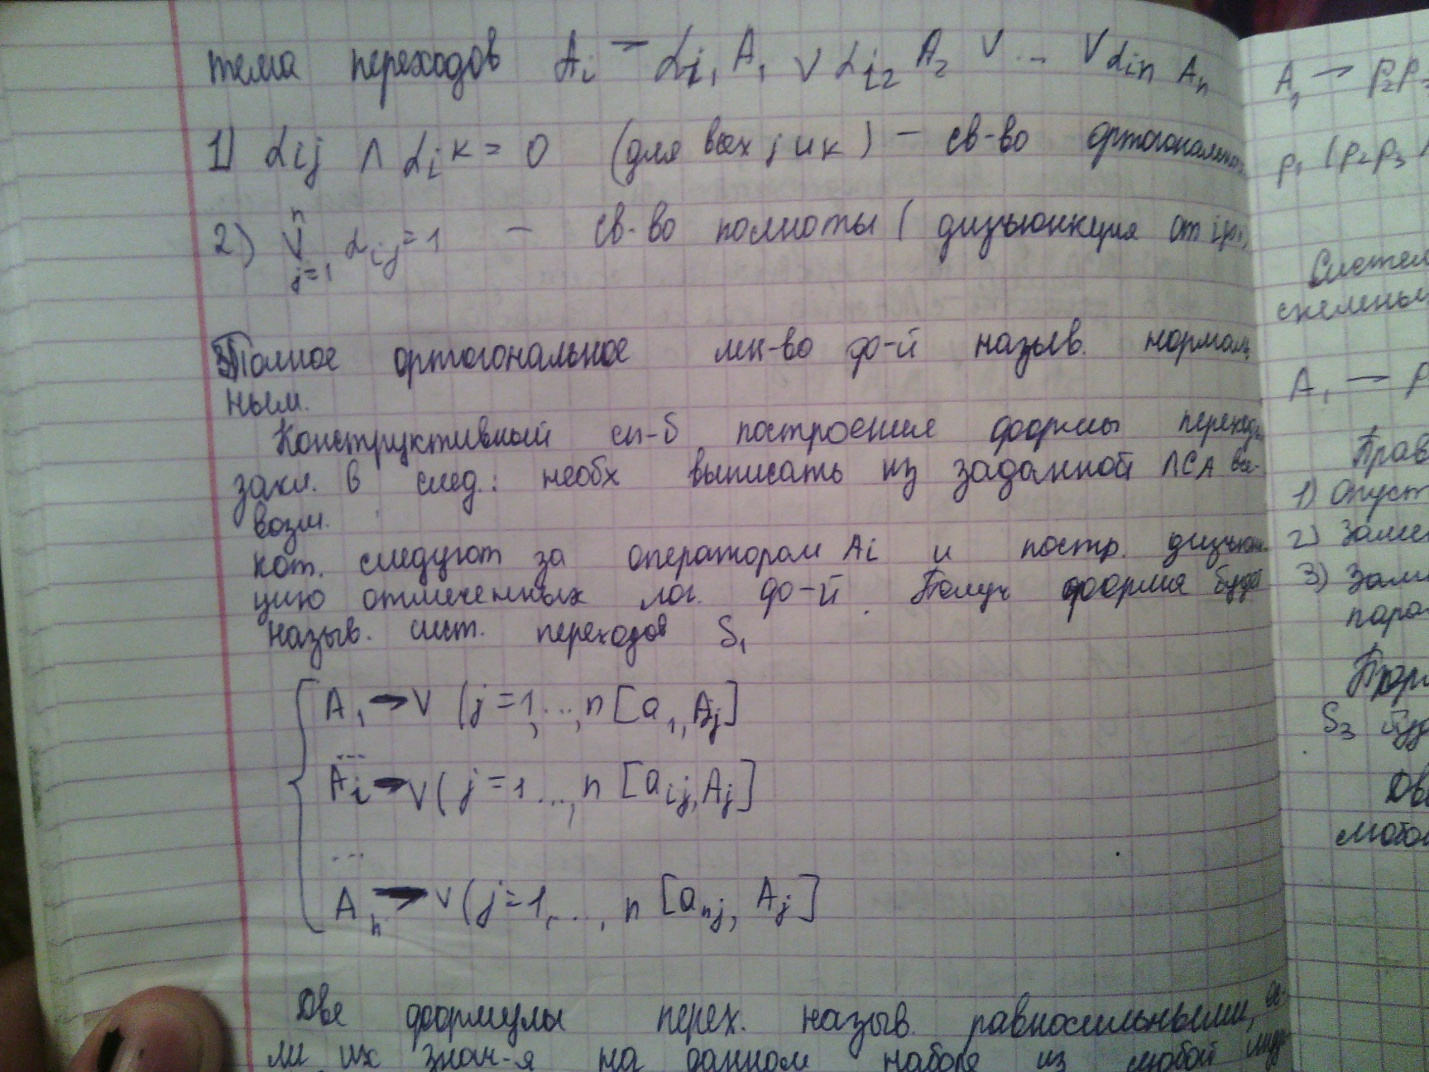 тема переходов Ai → αi1 A1 ∨ αi2 A2 ∨ ... ∨ αin An
1) αij ∧ αik = 0 (для всех j и k) – св-во
2) n ∨ j=1 αij = 1 – св-во полноты ( дизъюнкция от
Полное ортогональное мн-во ф-й назыв. нормаль
ным.
Конструктивный сп-б построения формы
закл. в след.: необх выписать из заданной ЛСА все-
возм.
кот. следуют за оператором Ai и постр. дизъюн-
цию отмеченных лог. ф-й. Получ форма будет
назыв. сист. переходов S1
A1 → ∨ (j=1,...,n [a1, Aj]
...
Ai → ∨ (j=1...,n [aij, Aj]
...
An → ∨ (j=1,..., n [anj, Aj]
Две формулы перех. назыв. равносильными, ес-
ли их знач-я на данном наборе из любой
A1 → p2p3
p1 (p2p3
Систем
схемны
A1 → p
Прав
1) опуст
2) Заме
3) Зам
S3 буд
Две
любом